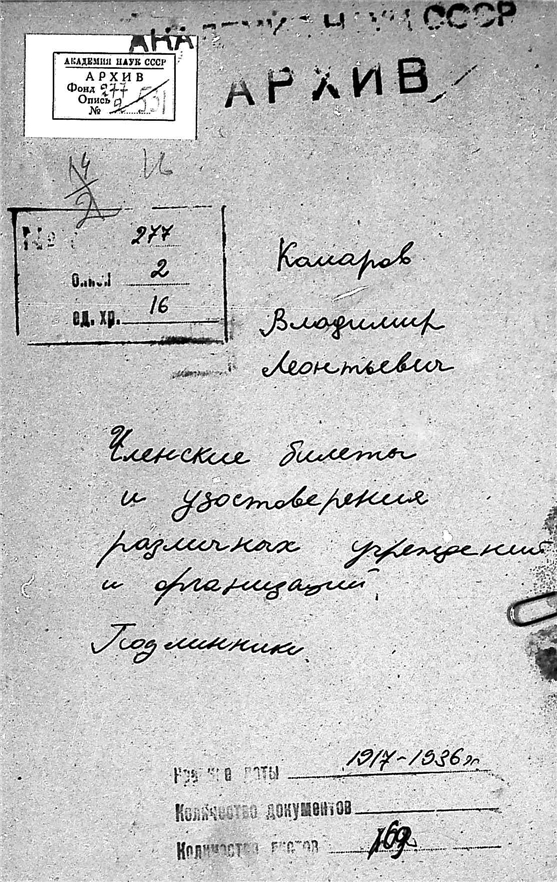 АКАДЕМИЯ НАУК СССР
АРХИВ
АКАДЕМИЯ НАУК СССР
АРХИВ
Фонд 277
Опись 2
№ 531
14/2
16
№ 277
опись 2
ед. хр. 16
Комаров
Владимир
Леонтьевич
Членские билеты
и удостоверения
различных учреждений
и организаций.
Подлинники.
Крайние даты 1917-1936 гг.
Количество документов
Количество листов 169